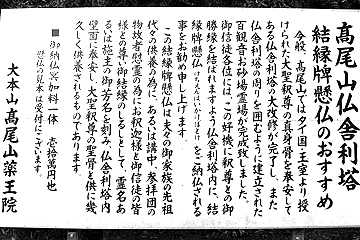 高尾山仏舎利塔
結縁牌懸仏のおすすめ
今般、高尾山ではタイ国・王室より授
けられた大聖釈尊の真身骨を奉安して
ある仏舎利塔の大改修が完了し、また
仏舎利塔の周りを囲むように建立された
百観音お砂場霊場が完成致しました。
御信徒各位には、この好機に釈尊との御
勝縁を結ばれますよう仏舎利塔内に、結
縁牌懸仏をご納仏される
事をお勧め申し上げます。
この結縁牌懸仏は夫々の御家族の先祖
代々の供養の為に、あるいは講中、参拝団の
物故者慰霊の為にお釈迦様と御信徒の皆
様との尊い御結縁のしるしとして、霊名あ
るいは施主の御芳名を刻み、仏舎利塔内
壁面に奉安し、大聖釈尊の聖骨と供に幾
久しく供養されるものであります。
■御納仏冥加料一体 壱拾萬円也
懸仏の見本は受付にございます。
大本山高尾山薬王院